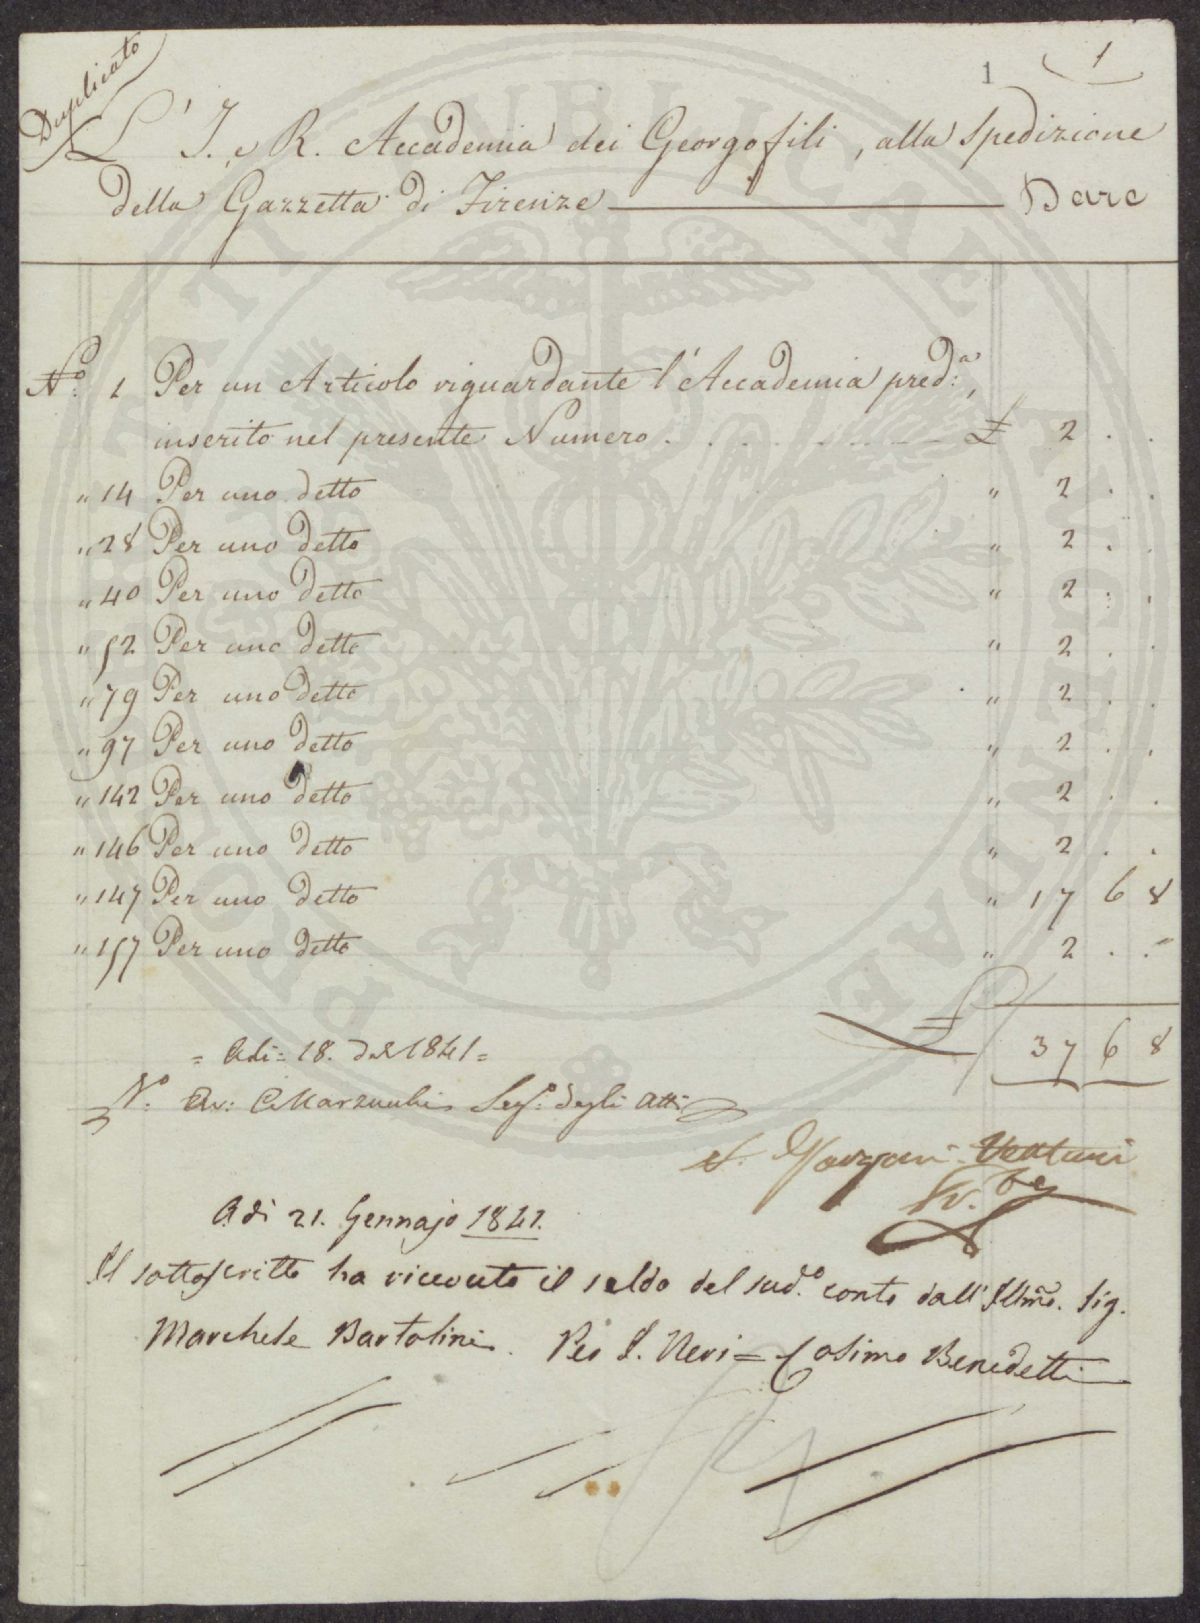 Duplicato
1
1
L' I. e R. Accademia dei Georgofili, alla Spedizione
della Gazzetta di Firenze Dare
N.° 1 Per un Articolo riguardante l'Accademia pred.a,
inserito nel presente Numero . . . . . . . £ 2 . .
" 14 Per uno detto " 2 . .
" 28 Per uno detto " 2 . .
" 40 Per uno detto " 2 . .
" 52 Per uno detto " 2 . .
" 79 Per uno detto " 2 . .
" 97 Per uno detto " 2 . .
" 142 Per uno detto " 2 . .
" 146 Per uno detto " 2 . .
" 147 Per uno detto " 17 6 8
" 157 Per uno detto " 2 . .
£ 37 6 8
= Adi = 18. 1841 =
V.° Av: C Marzucchi Seg.° degli Atti
Adì 21. Gennajo 1841.
Il sottoscritto ha ricevuto il saldo del sud.° conto dall'Illmo. Sig.
Marchese Bartolini. Per I. Neri = Cosimo Benedetti
PROSPERITATI PUBLICAE AUGENDAE